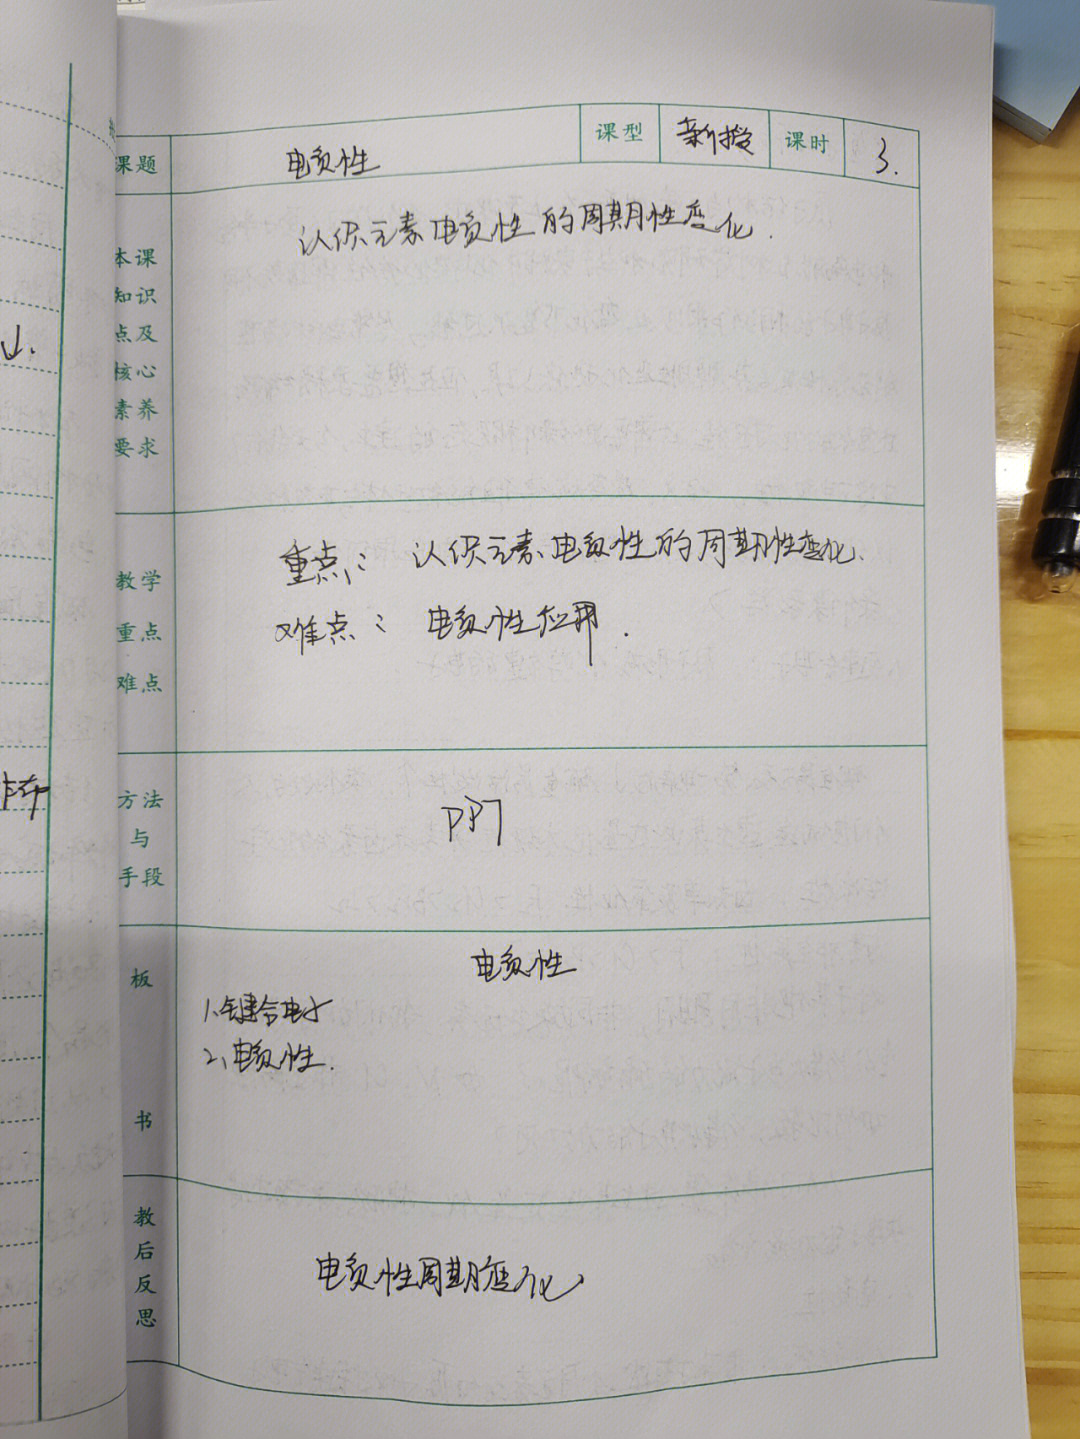 课题 电负性 课型 新授 课时 3.
本课
知识
点及
核心
素养
要求
认识元素电负性的周期性变化.
教学
重点
难点
重点: 认识元素电负性的周期性变化.
难点: 电负性应用.
方法
与
手段
PPT
板
书
电负性
1、键合电子
2、电负性.
教
后
反
思
电负性周期性变化